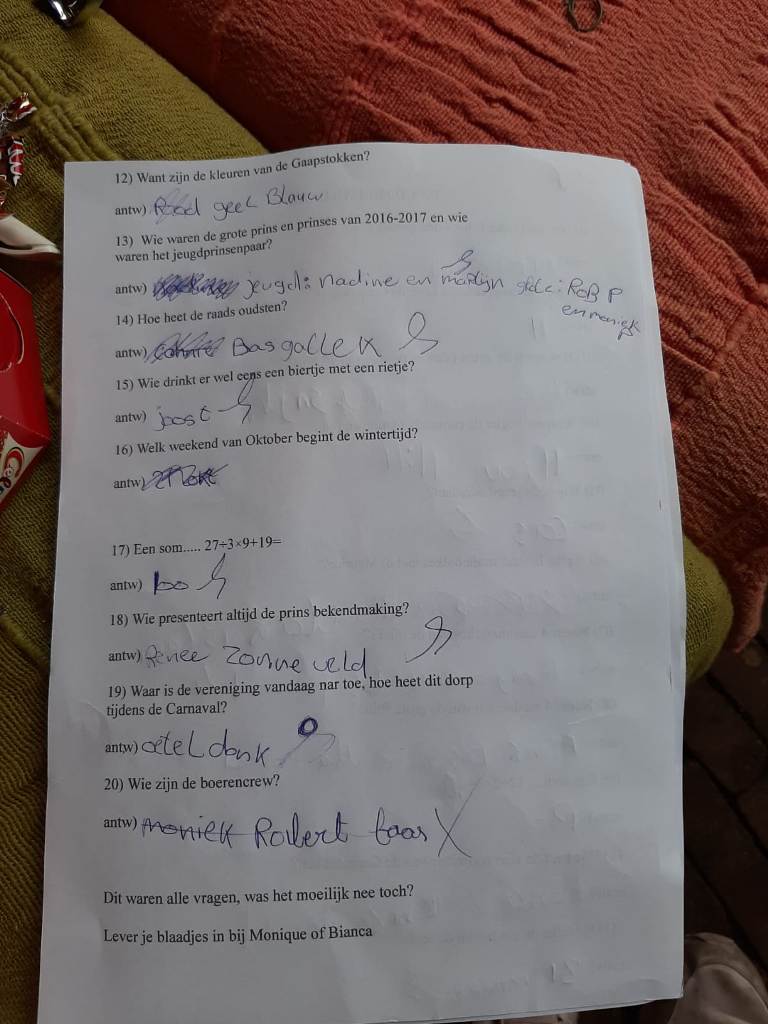 12) Want zijn de kleuren van de Gaapstokken?
antw) Rood geel Blauw
13) Wie waren de grote prins en prinses van 2016-2017 en wie
waren het jeugdprinsenpaar?
antw) jeugd: nadine en martijn RoB P
en moniek
14) Hoe heet de raads oudsten?
antw) Bas gallek
15) Wie drinkt er wel eens een biertje met een rietje?
antw) joost
16) Welk weekend van Oktober begint de wintertijd?
antw)
17) Een som..... 27÷3×9+19=
antw)
18) Wie presenteert altijd de prins bekendmaking?
antw) Renee Zonneveld
19) Waar is de vereniging vandaag nar toe, hoe heet dit dorp
tijdens de Carnaval?
antw) oeteldonk
20) Wie zijn de boerencrew?
antw) moniek Robert
Dit waren alle vragen, was het moeilijk nee toch?
Lever je blaadjes in bij Monique of Bianca